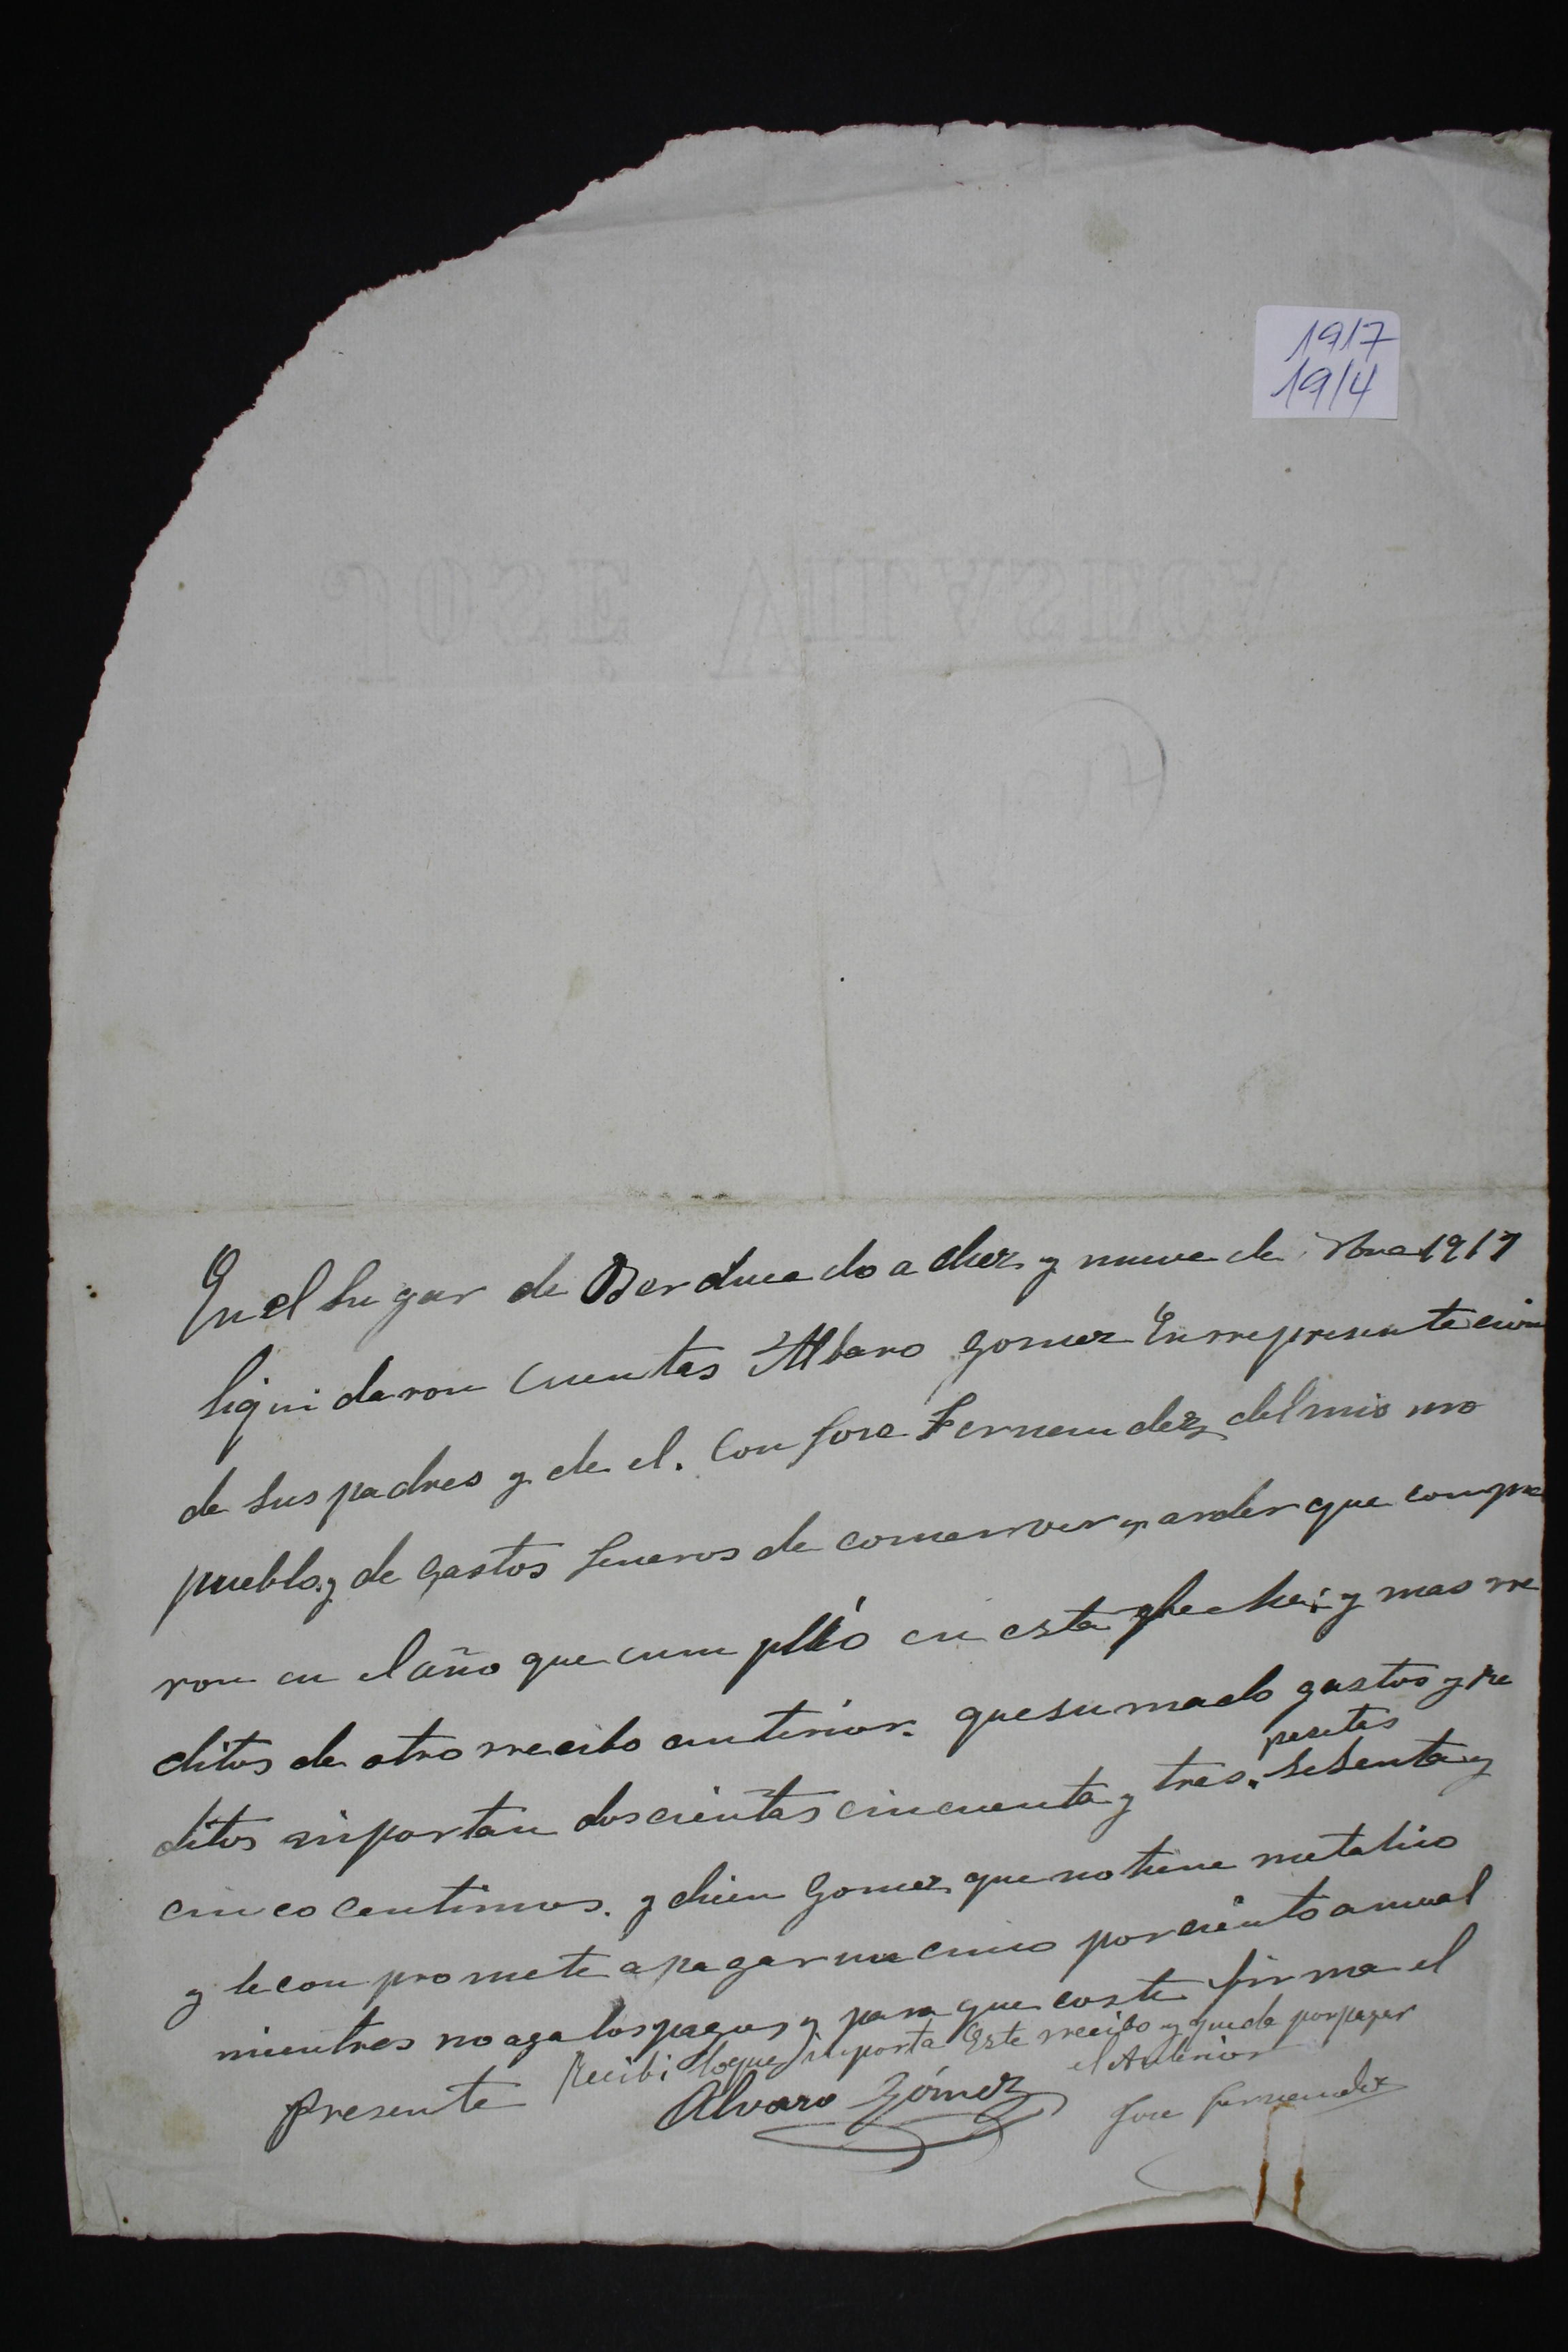 1917
1914
JOSE VILASECA
En el Lugar de Berducedo a diez y nueve de Nbre 1917
liquidaron Cuentas Albaro Gomez En rrepresentacion
de sus padres y de el. Con Jose Fernendez del mismo
pueblo. y de gastos Jeneros de comer y arder que compra
ron en el año que cumplió en esta fhecha; y mas rre
ditos de otro rrecibo anterior. que sumado gastos y rre
ditos importan doscientas cincuenta y tres. pesetas sesenta y
cinco centimos. y dicen Gomez que no tiene metalico
y se conpromete a pagar un cinco por ciento anual
mientres no aga los pagos y para que coste firma el
presente
Recibi loque importa Este rrecibo y queda por pagar
el Anterior
Alvaro Gómez
Jose Fernendez